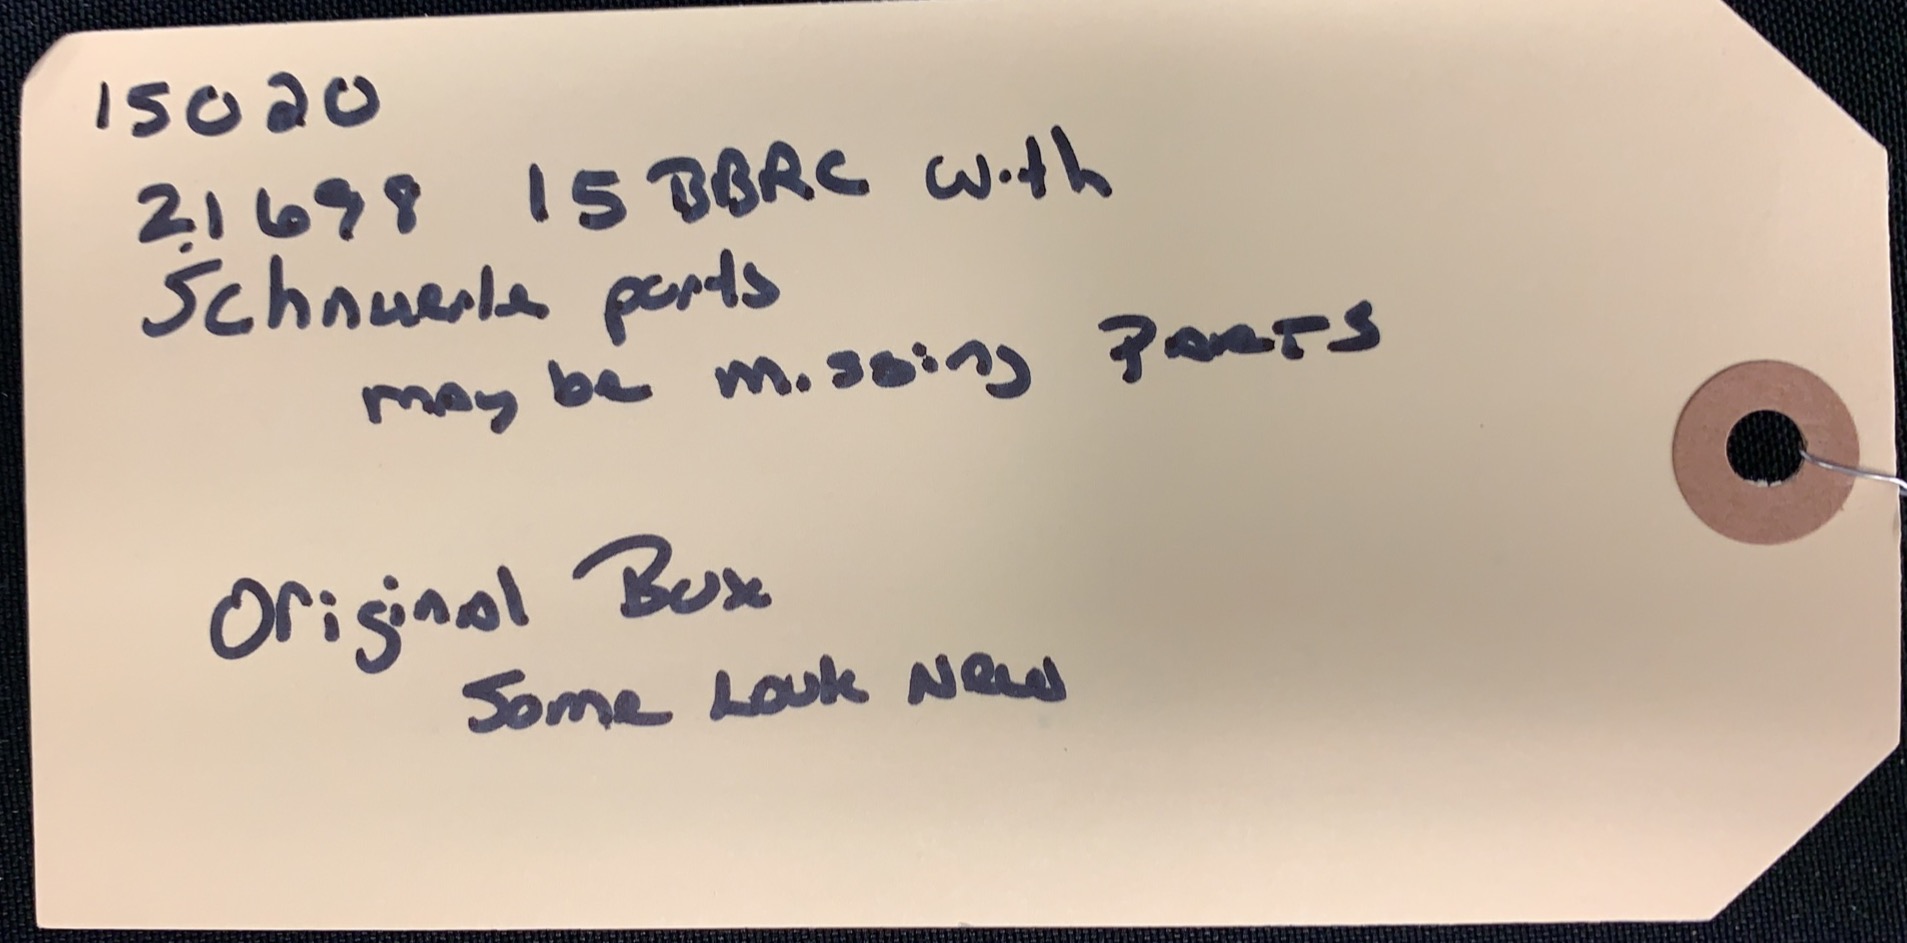 15020
21698 15 BBRC with
Schnuerle ports
may be missing PARTS
Original Box
Some Look New